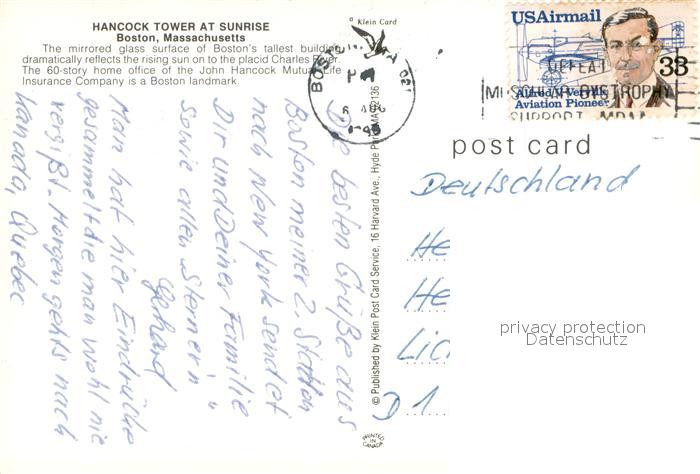 HANCOCK TOWER AT SUNRISE
Boston, Massachusetts
The mirrored glass surface of Boston's tallest building
dramatically reflects the rising sun on to the placid Charles River.
The 60-story home office of the John Hancock Mutual Life
Insurance Company is a Boston landmark.
a Klein Card
BOSTON MA 021
PM
6 AUG
USAirmail
33
Alfred V. Verville
Aviation Pioneer
DEFEAT
MUSCULAR DYSTROPHY
SUPPORT MDA
post card
Deutschland
He
He
Lic
D 1
privacy protection
Datenschutz
© Published by Klein Post Card Service, 16 Harvard Ave., Hyde Park, MA 02136
PRINTED
IN
CANADA
Die besten Grüße aus
Boston meiner 2. Station
nach New York sendet
Dir und Deiner Familie
sowie allen "Sternern"
Gerhard
Man hat hier Eindrücke
gesammelt die man wohl nie
vergißt. Morgen gehts nach
Kanada, Quebec